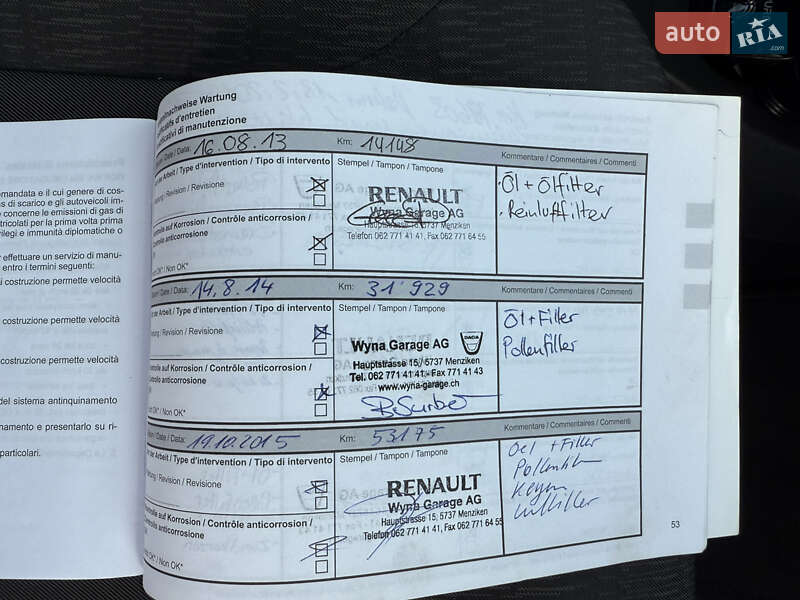 auto RIA.com
nachweise Wartung
d'entretien
cativi di manutenzione
Date / Data: 16.08.13 Km: 14148
der Arbeit / Type d'intervention / Tipo di intervento
Stempel / Tampon / Tampone
Kommentare / Commentaires / Commenti
/ Revision / Revisione
RENAULT
Wyna Garage AG
Hauptstrasse 15, 5737 Menziken
Telefon 062 771 41 41, Fax 062 771 64 55
Öl + Ölfilter
Reinluftfilter
auf Korrosion / Contrôle anticorrosion /
Controllo anticorrosione
OK* / Non OK*
Date / Data: 14.8.14 Km: 31'929
der Arbeit / Type d'intervention / Tipo di intervento
Stempel / Tampon / Tampone
Kommentare / Commentaires / Commenti
/ Revision / Revisione
Wyna Garage AG
DACIA
Hauptstrasse 15, 5737 Menziken
Tel. 062 771 41 41 - Fax 771 41 43
www.wyna-garage.ch
Öl + Filter
Pollenfilter
auf Korrosion / Contrôle anticorrosion /
Controllo anticorrosione
OK* / Non OK*
Date / Data: 19.10.2015 Km: 53175
der Arbeit / Type d'intervention / Tipo di intervento
Stempel / Tampon / Tampone
Kommentare / Commentaires / Commenti
/ Revision / Revisione
RENAULT
Wyna Garage AG
Hauptstrasse 15, 5737 Menziken
Telefon 062 771 41 41, Fax 062 771 64 55
Oel + Filter
Pollenfilter
Luftfilter
auf Korrosion / Contrôle anticorrosion /
Controllo anticorrosione
OK* / Non OK*
53
omandata e il cui genere di cos-
as di scarico e gli autoveicoli im-
e concerne le emissioni di gas di
tricolati per la prima volta prima
vilegi e immunità diplomatiche o
effettuare un servizio di manu-
entro i termini seguenti:
i costruzione permette velocità
costruzione permette velocità
costruzione permette velocità
del sistema antinquinamento
namento e presentarlo su ri-
particolari.